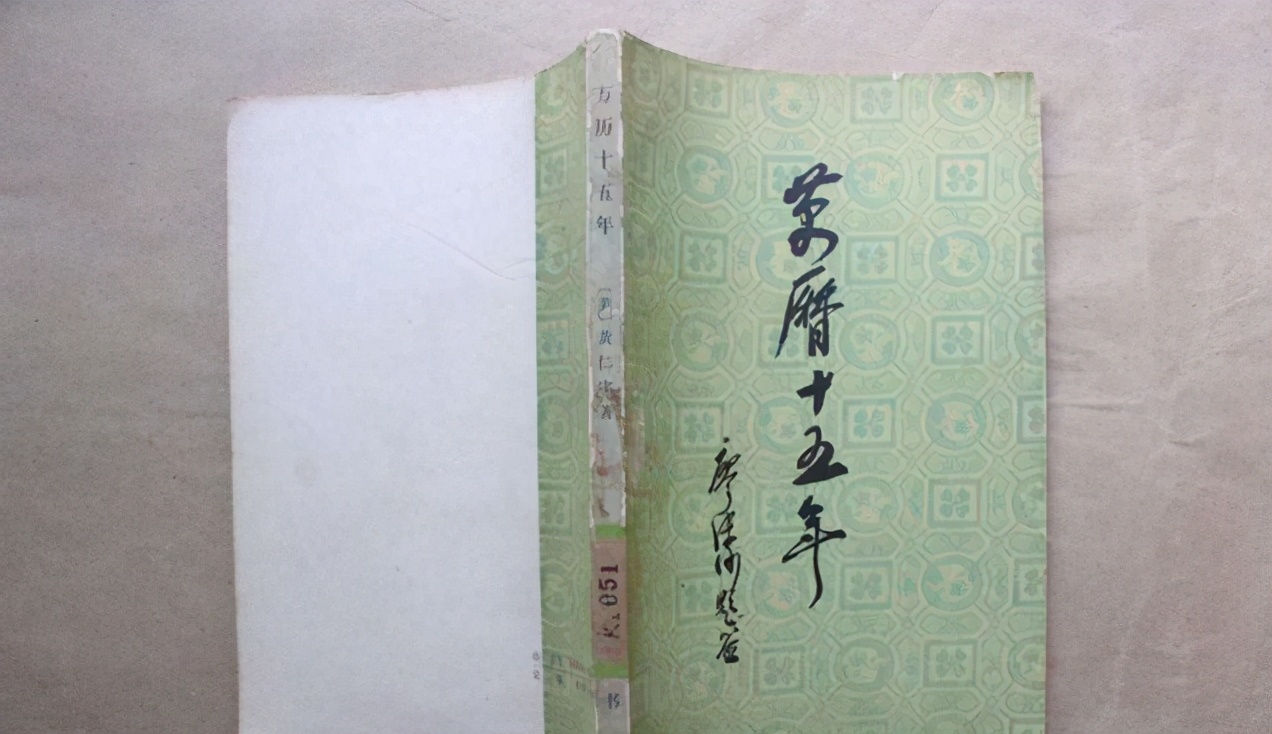 萬曆十五年
廖沫沙題签
万历十五年
〔美〕黄仁宇著
K 051